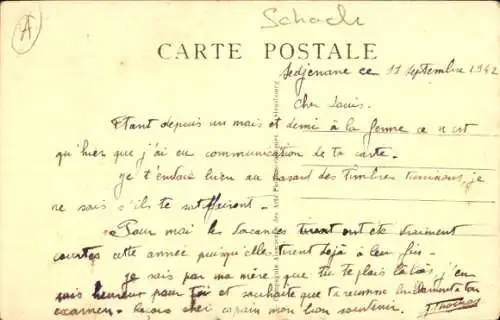 A
Schach
CARTE POSTALE
Sedjenane ce 11 septembre 1942
Cher Louis.
Etant depuis un mois et demi à la ferme ce n'est
qu'hier que j'ai eu communication de ta carte.
je t'envoie bien au hasard des timbres tunisiens, je
ne sais s'ils te satisferont.
Pour moi les vacances ont été vraiment
courtes cette année puisqu'elles tirent déjà à leur fin.
je sais par ma mère que tu te plais là-bas, j'en
suis heureux pour toi et souhaite que ta reconnaisse ton
examen. Reçois cher copain mon bon souvenir.